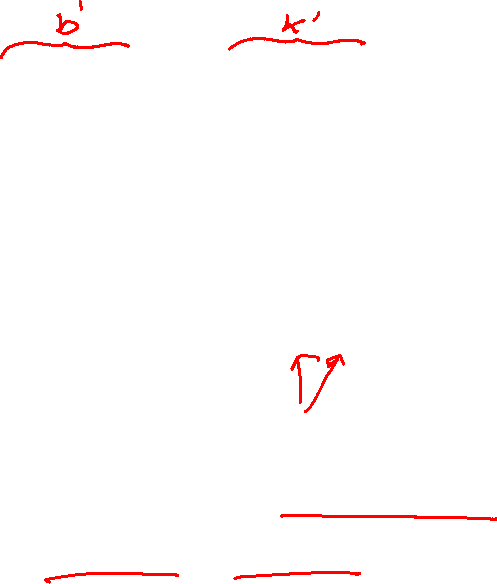 b' k'